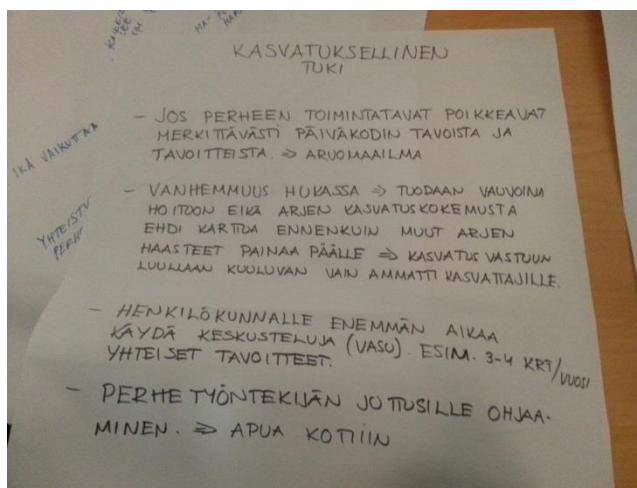 KASVATUKSELLINEN
TUKI
- JOS PERHEEN TOIMINTATAVAT POIKKEAVAT
MERKITTÄVÄSTI PÄIVÄKODIN TAVOISTA JA
TAVOITTEISTA. => ARVOMAAILMA
- VANHEMMUUS HUKASSA => TUODAAN VAUVOINA
HOITOON EIKÄ ARJEN KASVATUSKOKEMUSTA
EHDI KARTTUA ENNENKUIN MUUT ARJEN
HAASTEET PAINAA PÄÄLLE => KASVATUS VASTUUN
LUULLAAN KUULUVAN VAIN AMMATTI KASVATTAJILLE.
- HENKILÖKUNNALLE ENEMMÄN AIKAA
KÄYDÄ KESKUSTELUJA (VASU). ESIM. 3-4 KRT/VUOSI
YHTEISET TAVOITTEET.
- PERHETYÖNTEKIJÄN JUTTUSILLE OHJAA-
MINEN. => APUA KOTIIN
IKÄ VAIKUTTAA
YHTEISTY
PERHE